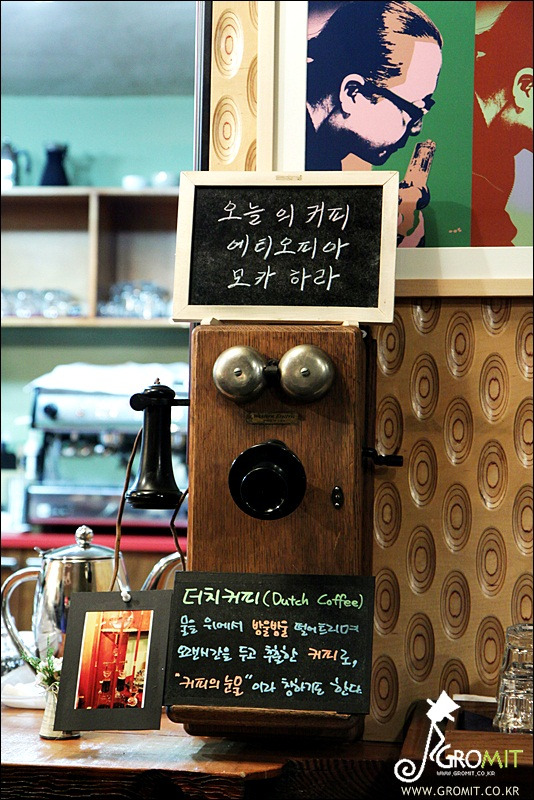 오늘의 커피
에티오피아
모카 하라
터치커피(Dutch Coffee)
물을 위에서 방울방울 떨어트리며
오랜시간을 두고 추출한 커피로,
"커피의 눈물"이라 칭하기도 한다.
GROMIT
WWW.GROMIT.CO.KR
WWW.GROMIT.CO.KR